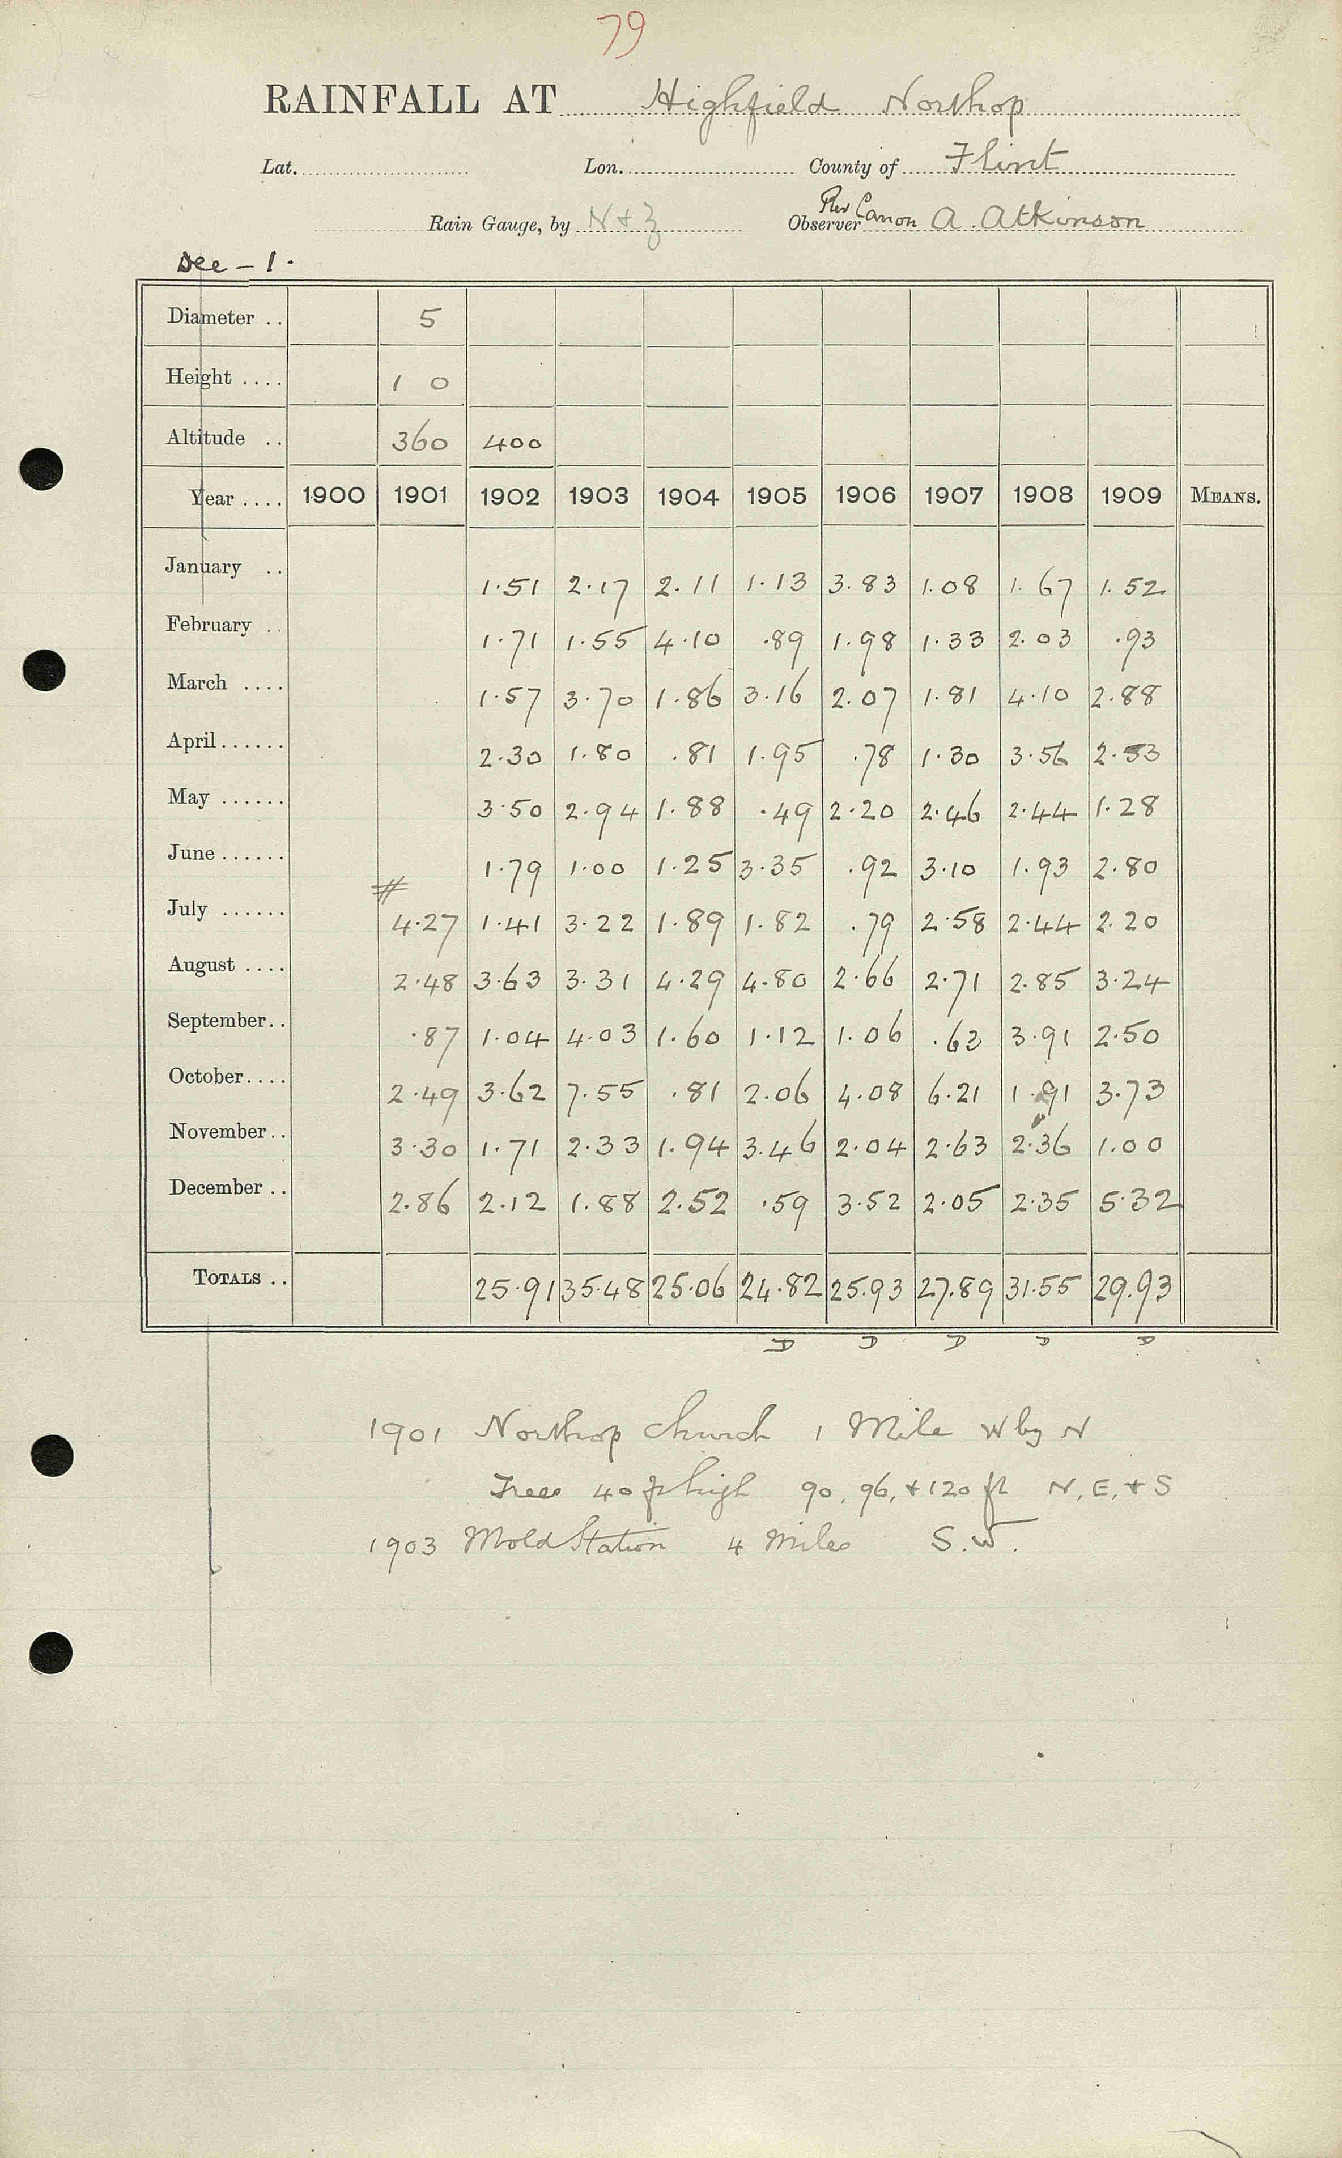 79
RAINFALL AT Highfield Northop
Lat. Lon. County of Flint
Rain Gauge, by N & Z Observer Rev Canon A. Atkinson
Dec - 1.
Diameter .. 5
Height .... 1 0
Altitude .. 360 400
Year .... 1900 1901 1902 1903 1904 1905 1906 1907 1908 1909 MEANS.
January .. 1.51 2.17 2.11 1.13 3.83 1.08 1.67 1.52
February .. 1.71 1.55 4.10 .89 1.98 1.33 2.03 .93
March .... 1.57 3.70 1.86 3.16 2.07 1.81 4.10 2.88
April ...... 2.30 1.80 .81 1.95 .78 1.30 3.56 2.53
May ...... 3.50 2.94 1.88 .49 2.20 2.46 2.44 1.28
June ...... 1.79 1.00 1.25 3.35 .92 3.10 1.93 2.80
July ...... # 4.27 1.41 3.22 1.89 1.82 .79 2.58 2.44 2.20
August .... 2.48 3.63 3.31 4.29 4.80 2.66 2.71 2.85 3.24
September .. .87 1.04 4.03 1.60 1.12 1.06 .63 3.91 2.50
October .... 2.49 3.62 7.55 .81 2.06 4.08 6.21 1.91 3.73
November .. 3.30 1.71 2.33 1.94 3.46 2.04 2.63 2.36 1.00
December .. 2.86 2.12 1.88 2.52 .59 3.52 2.05 2.35 5.32
TOTALS .. 25.91 35.48 25.06 24.82 25.93 27.89 31.55 29.93
D D D D D
1901 Northop Church 1 Mile W by N
Trees 40 ft high 90, 96, & 120 ft N, E, & S
1903 Mold Station 4 Miles S.W.